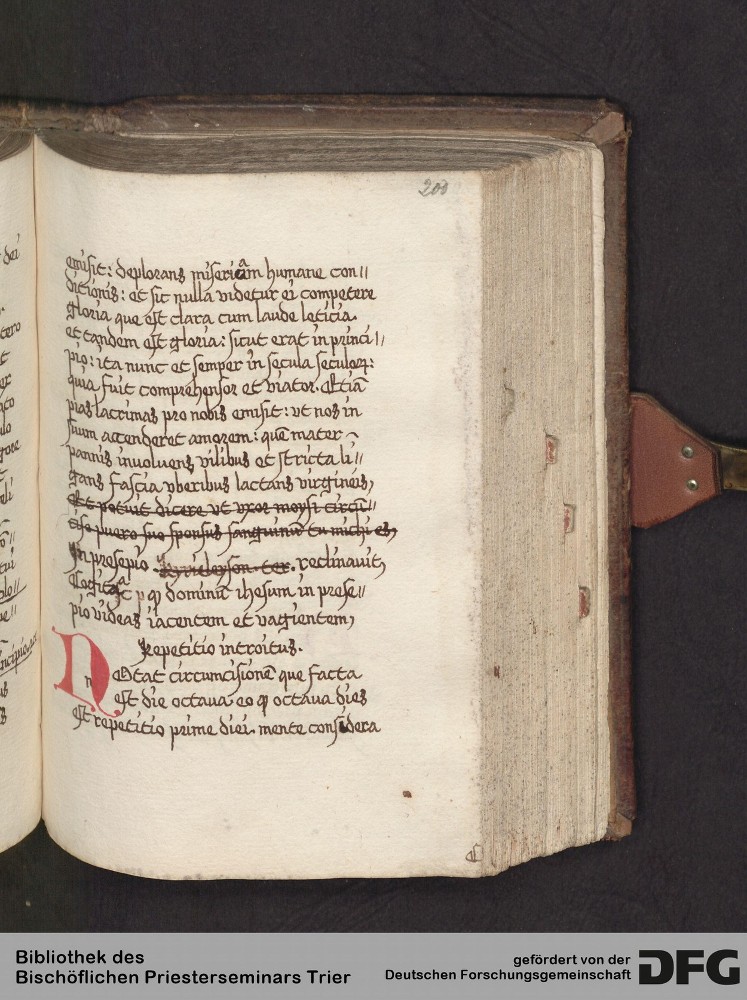 200
emisit: deplorans miseriam humane con//
ditionis: et sic nulla videtur ei competere
gloria que est clara cum laude leticia.
et tandem est gloria: sicut erat in princi//
pio: ita nunc et semper in secula seculoꝝ:
quia fuit comprehensor et viator. Etiā
pias lacrimas pro nobis emisit: vt nos in
suum accenderet amorem: quē mater
pannis inuoluens vilibus et stricta li//
gans fascia vberibus lactans virgineis,
Et potuit dicere vt vxor moysi circū//
cise puero suo sponsus sanguinū tu michi es,
In presepio. Kyrieleyson ter. reclinauit,
Cogitat ꝙ dominū ihesum in prese//
pio videas iacentem et vagientem,
Repetitio introitus.
NOtat circumcisionē que facta
est die octaua eo ꝙ octaua dies
est repetitio prime diei. mente considera
dei
Bibliothek des
Bischöflichen Priesterseminars Trier
gefördert von der
Deutschen Forschungsgemeinschaft
DFG